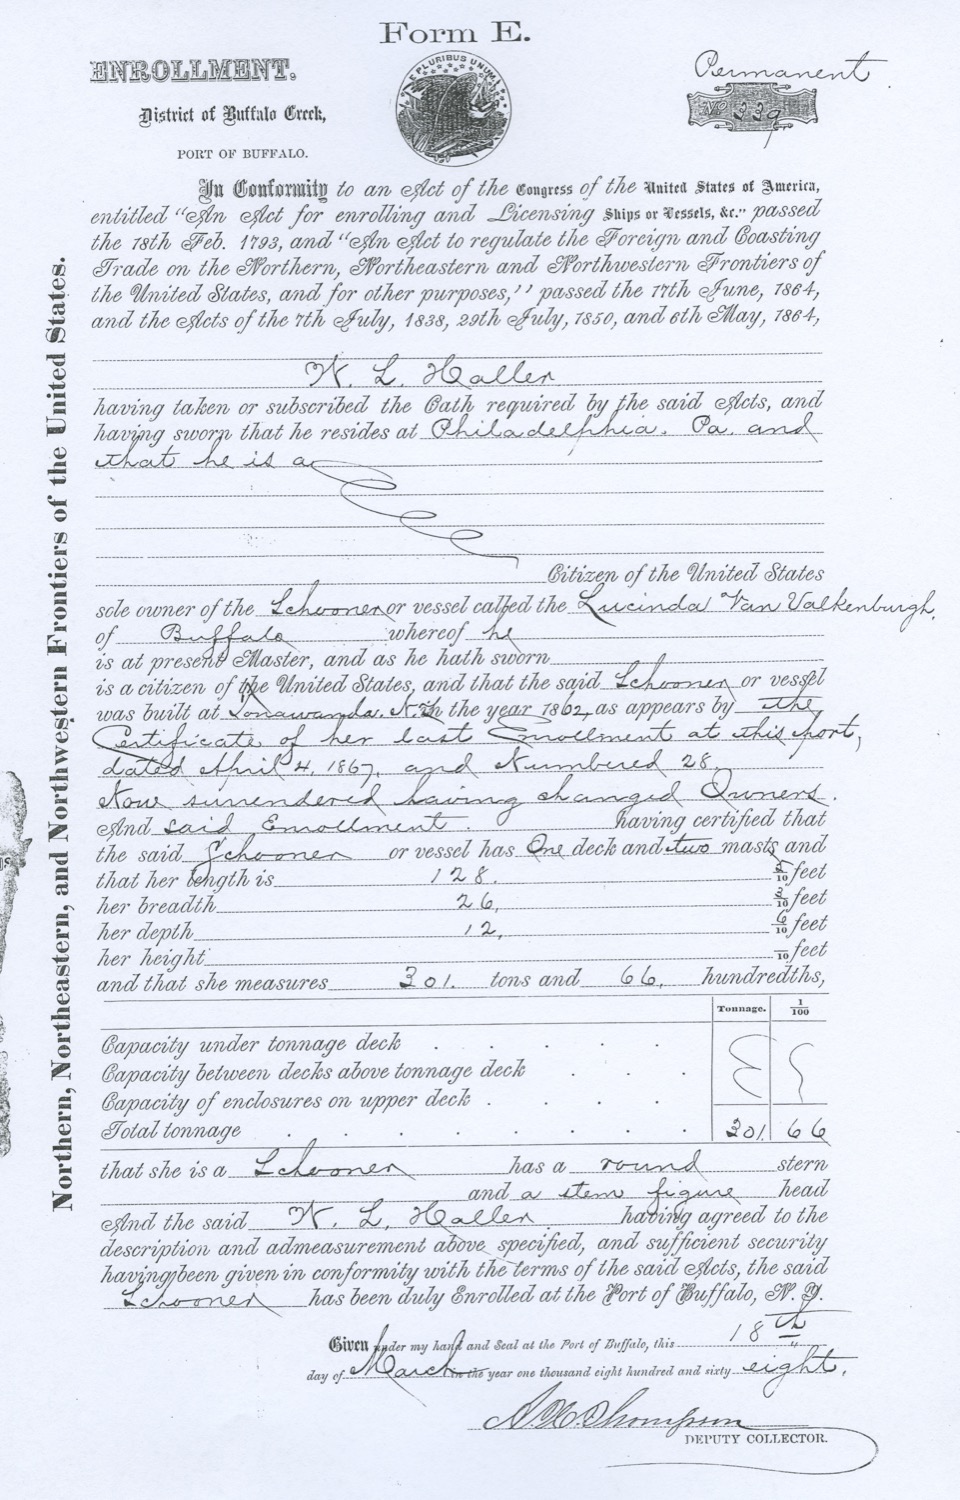 Form E.
ENROLLMENT.
E PLURIBUS UNUM
Permanent
District of Buffalo Creek,
No 339
PORT OF BUFFALO.
In Conformity to an Act of the Congress of the United States of America,
entitled "An Act for enrolling and Licensing Ships or Vessels, &c." passed
the 18th Feb. 1793, and "An Act to regulate the Foreign and Coasting
Trade on the Northern, Northeastern and Northwestern Frontiers of
the United States, and for other purposes," passed the 17th June, 1864,
and the Acts of the 7th July, 1838, 29th July, 1850, and 6th May, 1864,
W. L. Haller
having taken or subscribed the Oath required by the said Acts, and
having sworn that he resides at Philadelphia. Pa. and
that he is a
Citizen of the United States
sole owner of the Schooner or vessel called the Lucinda Van Valkenburgh,
of Buffalo whereof he
is at present Master, and as he hath sworn
is a citizen of the United States, and that the said Schooner or vessel
was built at Tonawanda. N. in the year 1862, as appears by the
Certificate of her last Enrollment at this port,
dated April 4, 1867, and Numbered 28.
Now surrendered having changed Owners.
And said Enrollment. having certified that
the said Schooner or vessel has One deck and two masts and
that her length is 128. 5/10 feet
her breadth 26, 3/10 feet
her depth 12, 6/10 feet
her height /10 feet
and that she measures 301. tons and 66, hundredths,
Tonnage. 1/100
Capacity under tonnage deck . . . . .
Capacity between decks above tonnage deck . . .
Capacity of enclosures on upper deck . . . .
Total tonnage . . . . . . . . 301. 66
that she is a Schooner has a round stern
and a stem figure head
And the said W. L. Haller. having agreed to the
description and admeasurement above specified, and sufficient security
having been given in conformity with the terms of the said Acts, the said
Schooner has been duly Enrolled at the Port of Buffalo, N. Y.
Given under my hand and Seal at the Port of Buffalo, this 18th
day of March in the year one thousand eight hundred and sixty eight.
DEPUTY COLLECTOR.
Northern, Northeastern, and Northwestern Frontiers of the United States.